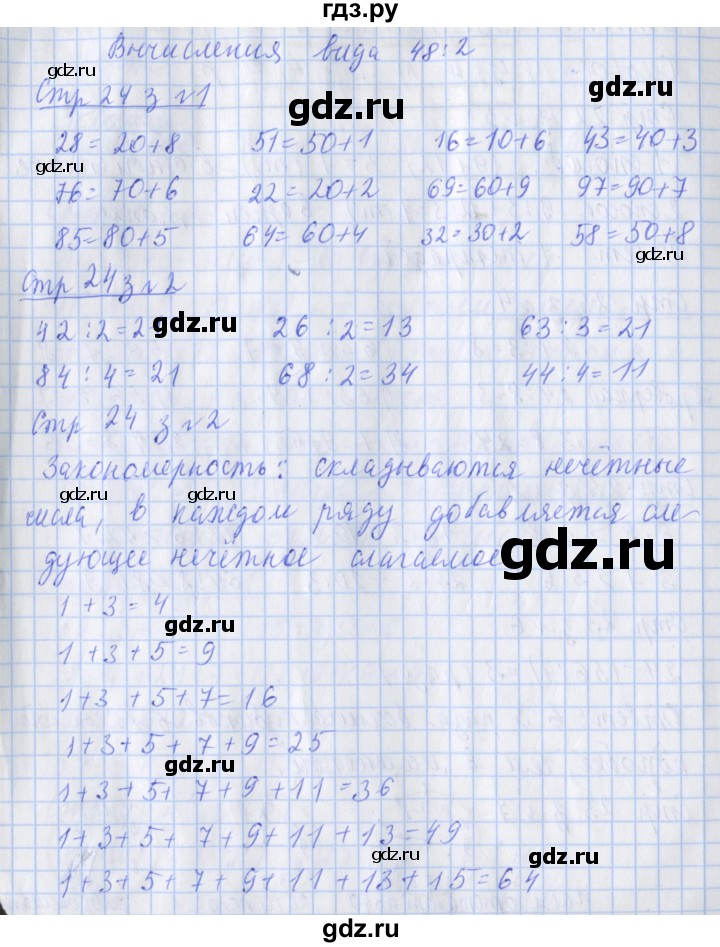 гдз.ру
Вычисления вида 48:2
gdz.ru
Стр 24 з №1
gdz.ru
gdz.ru
28=20+8 51=50+1 16=10+6 43=40+3
gdz.ru
76=70+6 22=20+2 69=60+9 97=90+7
85=80+5 64=60+4 32=30+2 58=50+8
gdz.ru
Стр 24 з №2
42:2=2 gdz.ru 26:2=13 63:3=21
84:4=21 68:2=34 44:4=11
gdz.ru
Стр 24 з №2
Закономерность: складываются нечётные
gdz.ru gdz.ru
числа, в каждом ряду добавляется сле-
дующее нечётное слагаемое
gdz.ru
1+3=4
gdz.ru
1+3+5=9
1+3+5+7=16
1+3+5+7+9=25
gdz.ru
1+3+5+7+9+11=36
1+3+5+7+9+11+13=49
gdz.ru gdz.ru
1+3+5+7+9+11+13+15=64
gdz.ru
gdz.ru